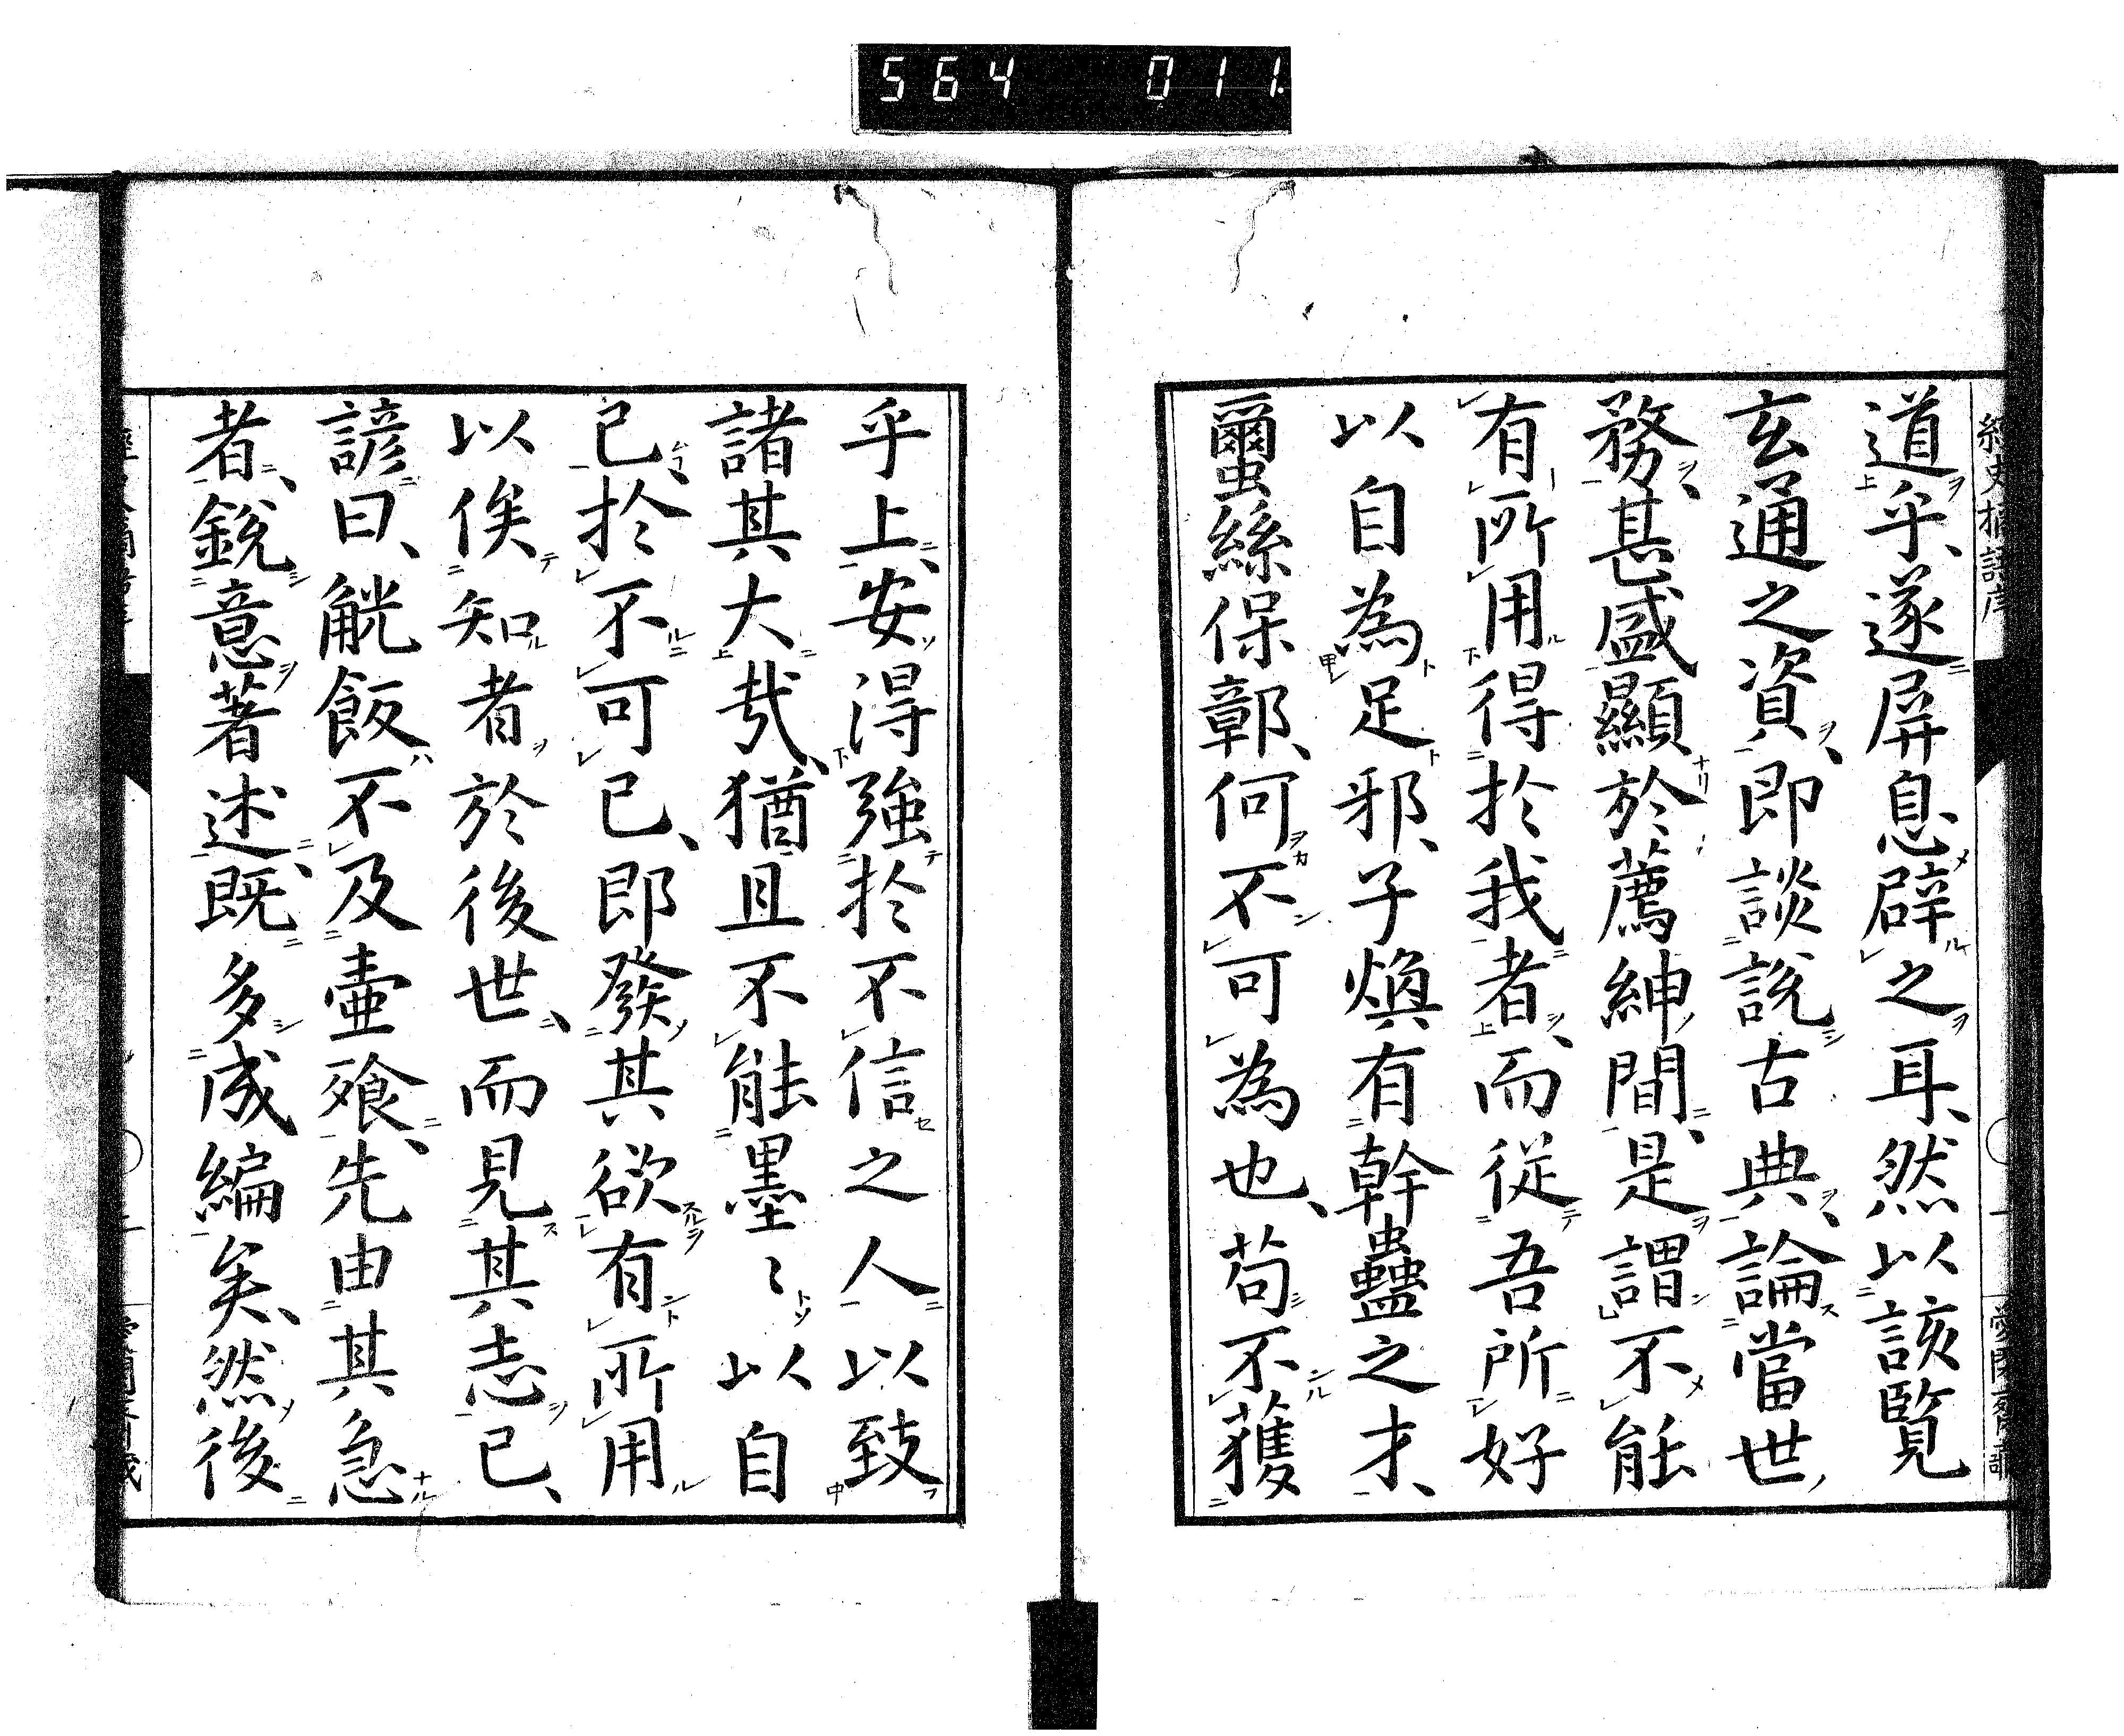 564 011
道乎、遂屏息辟之耳、然以該覧
玄通之資、即談說古典、論當世
務、甚盛顯於薦紳間、是謂不能
有所用得於我者、而從吾所好
以自為足邪、子煥有幹蠱之才、
蠒絲保鄣、何不可為也、苟不獲
乎上、安得強於不信之人以致
諸其大哉、猶且不能墨〻以自
已、於不可已、即發其欲有所用
以俟知者於後世、而見其志已、
諺曰、觥飯不及壷飱、先由其急
者、銳意著述、既多成編矣、然後